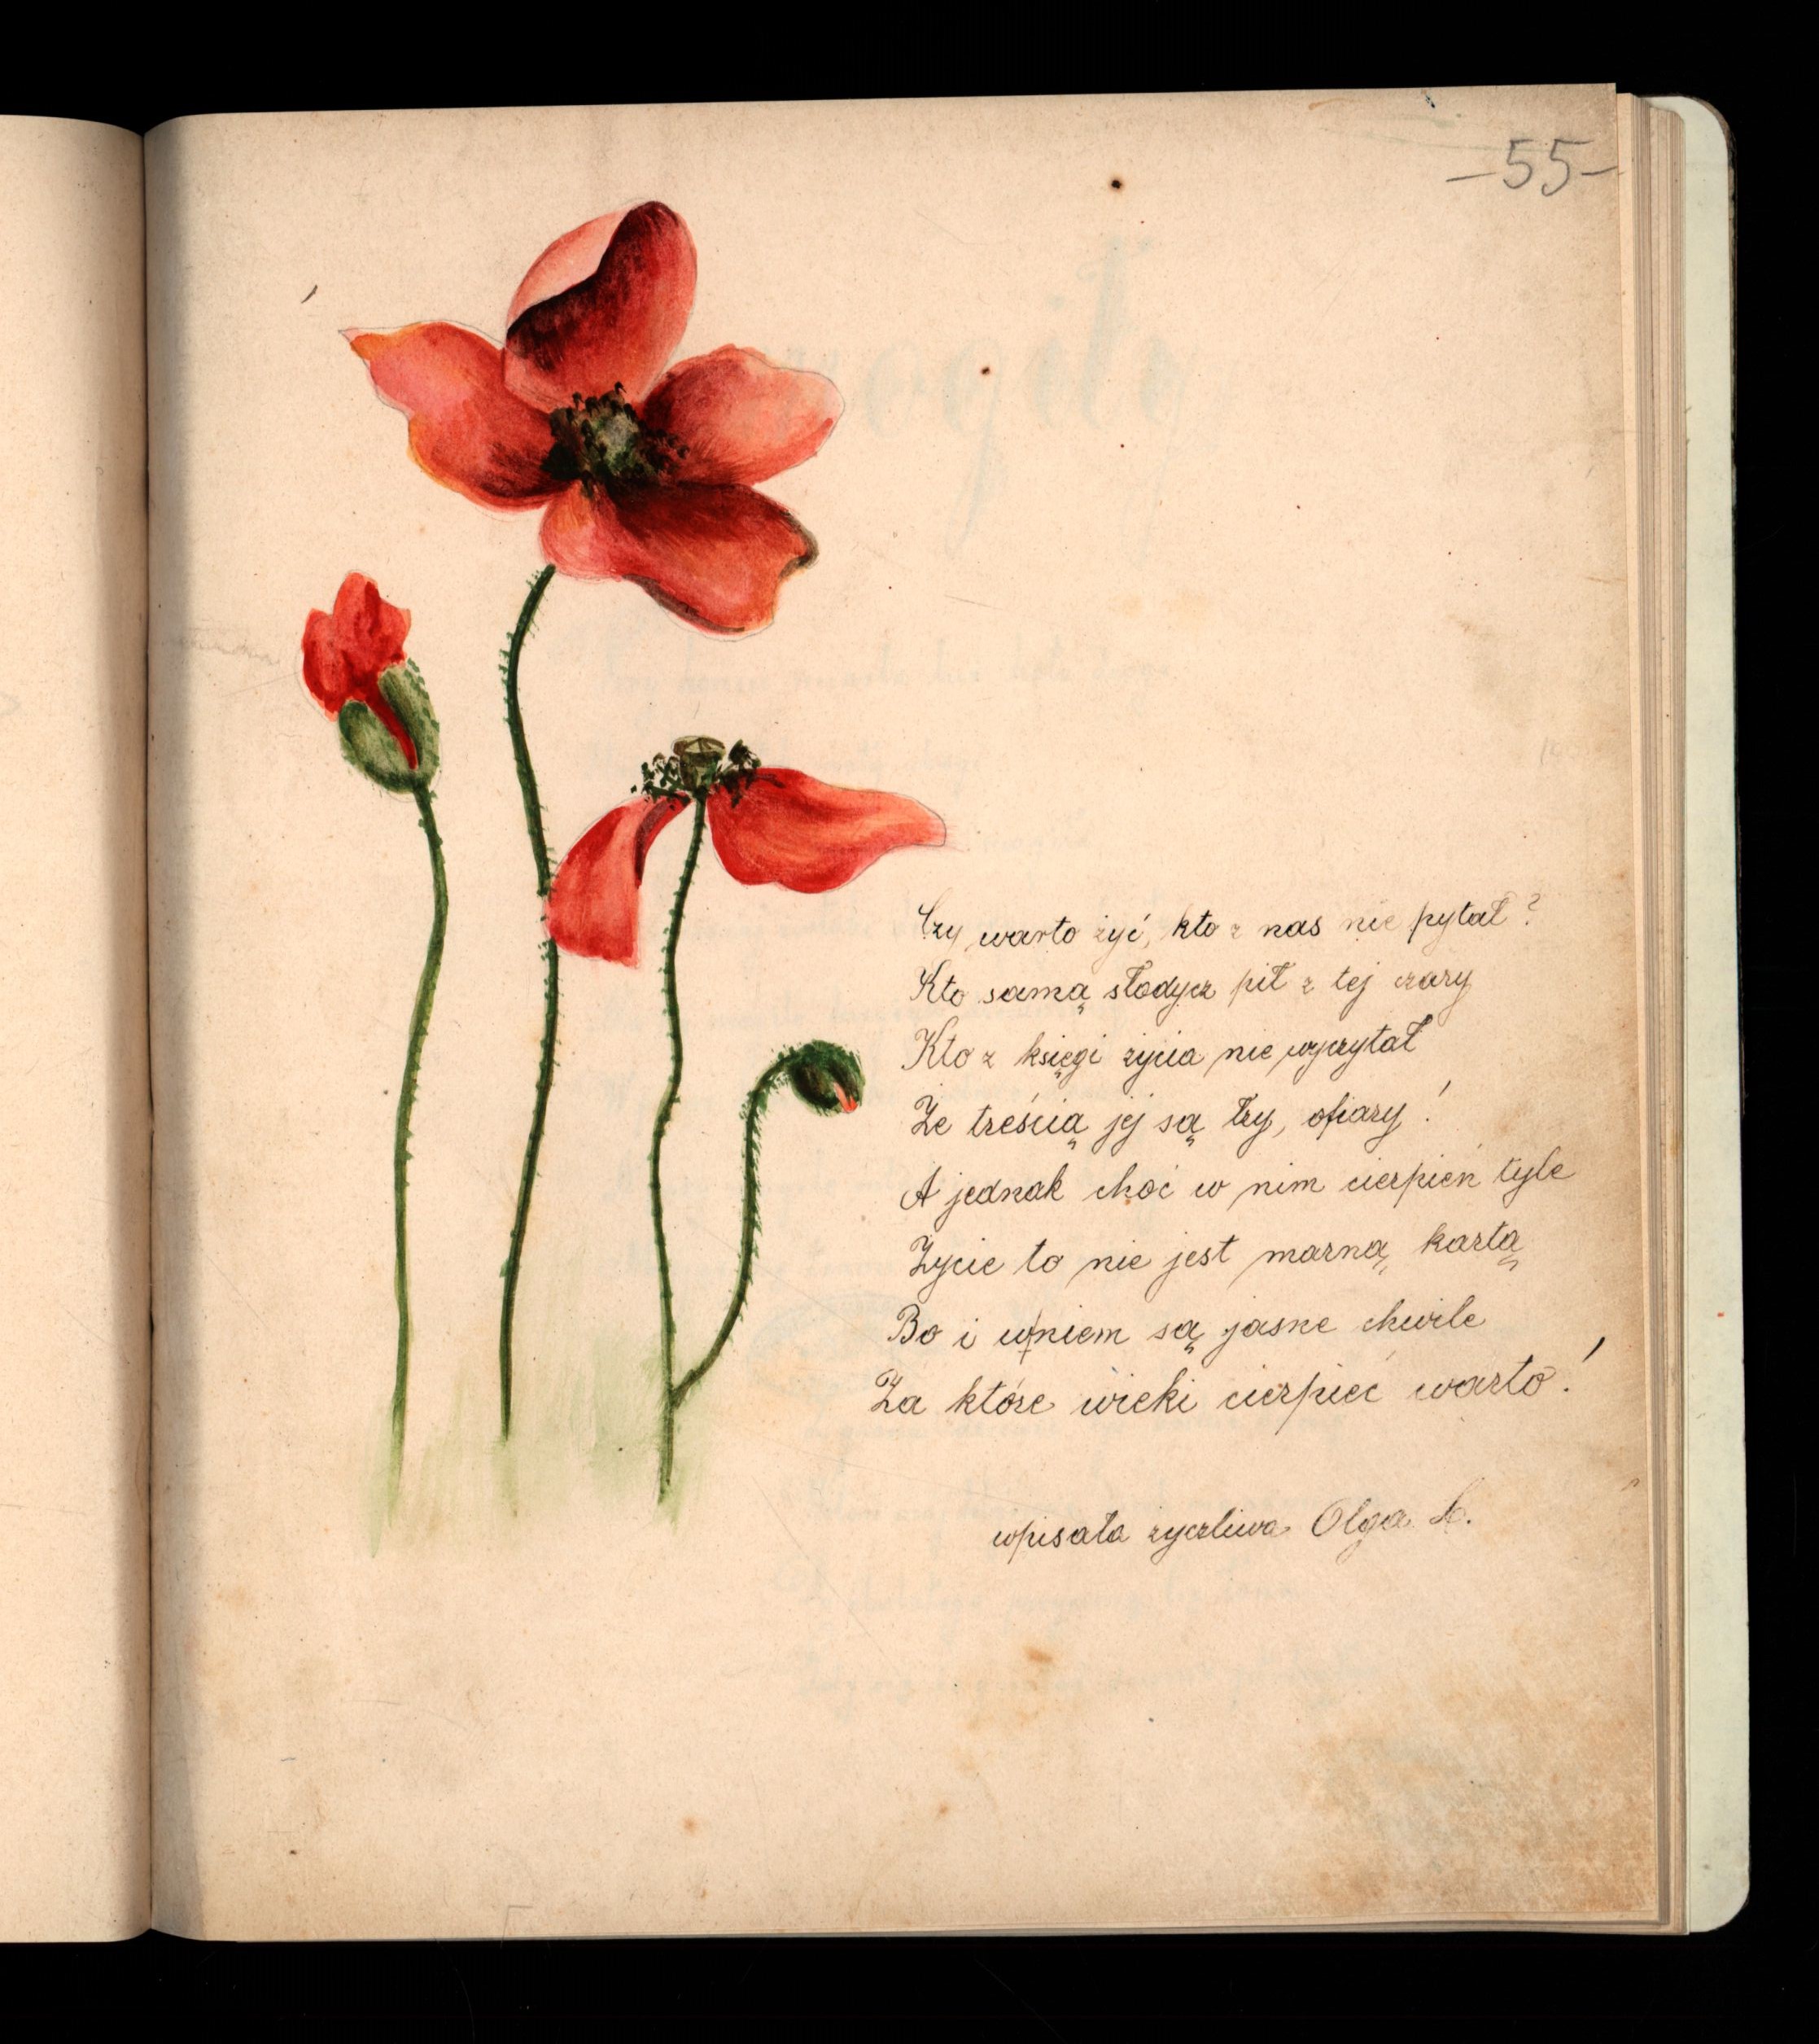 -55-
Czy warto żyć, kto z nas nie pytał?
Kto samą słodycz pił z tej czary
Kto z księgi życia nie wyczytał
Że treścią jej są łzy, ofiary!
A jednak choć w nim cierpień tyle
Życie to nie jest marną kartą
Bo i w niem są jasne chwile
Za które wieki cierpieć warto!
wpisała życzliwa Olga